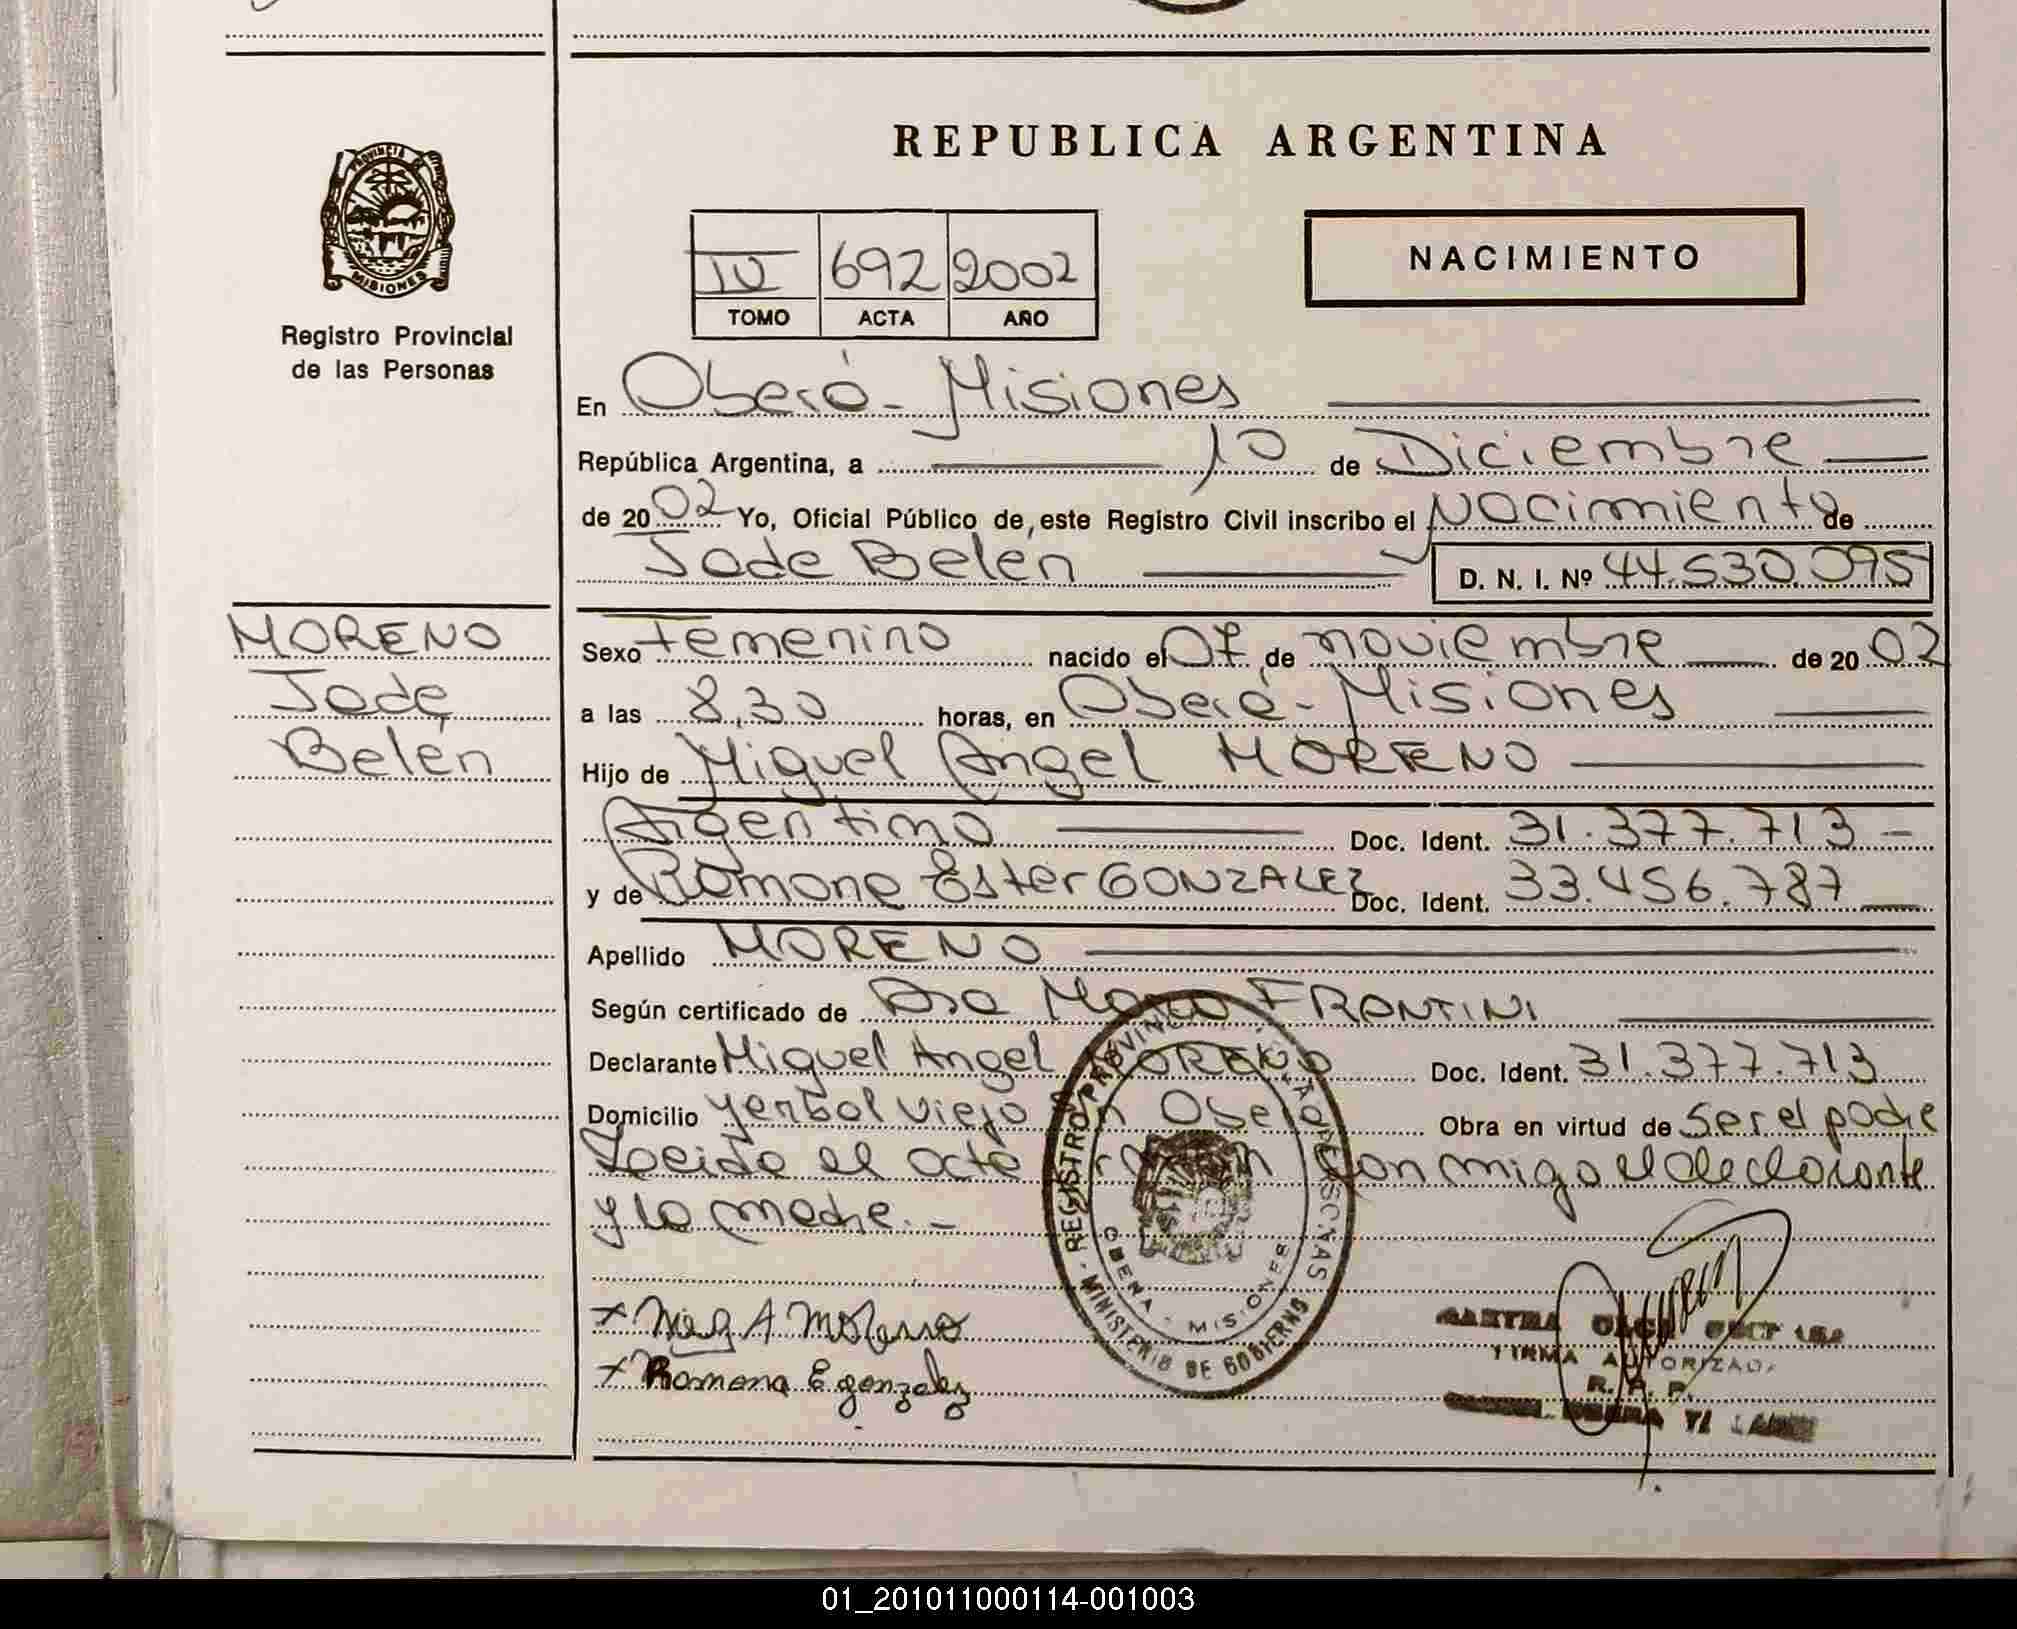 REPUBLICA ARGENTINA
PROVINCIA
MISIONES
Registro Provincial
de las Personas
IV 692 2002
TOMO ACTA AÑO
NACIMIENTO
En Oberá - Misiones
República Argentina, a 10 de Diciembre
de 2002 Yo, Oficial Público de este Registro Civil inscribo el Nacimiento de
Jade Belén D. N. I. Nº 44.530.095
MORENO
Jade
Belén
Sexo Femenino nacido el 07 de noviembre de 2002
a las 8,30 horas, en Oberá - Misiones
Hijo de Miguel Angel MORENO
Argentino Doc. Ident. 31.377.713 -
y de Ramona Ester GONZALEZ Doc. Ident. 33.456.787
Apellido MORENO
Según certificado de Dra FRONTINI
Declarante Miguel Angel MORENO Doc. Ident. 31.377.713
Domicilio Yerbal viejo en Oberá Obra en virtud de ser el padre
Leída el acta firman conmigo el declarante
y la madre. -
REGISTRO PROVINCIAL DE LAS PERSONAS
MINISTERIO DE GOBIERNO
OBERA - MISIONES
x Mig A Moreno
x Ramona E gonzalez
FIRMA AUTORIZADA
R. P. P.
01_201011000114-001003